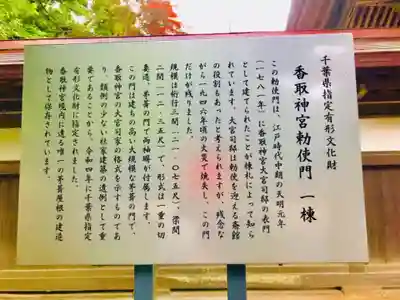 千葉県指定有形文化財
香取神宮勅使門 一棟
この勅使門は、江戸時代中期の天明元年
(一七八一年)に香取神宮大宮司邸の表門
として建てられたことが棟札によって知ら
れています。大宮司邸は勅使を迎える斎館
の役割もあったと考えられますが、残念な
がら一九四六年頃の火災で焼失し、この門
だけが残りました。
規模は桁行三間(二一・〇七五尺)、梁間
二間(一二・五尺)で、形式は一重の切
妻造、茅葺の門で両袖塀が付属します。
この門は建ちの高い大規模な茅葺の門で、
香取神宮の大宮司家の格式を示すものであ
り、類例の少ない社家建築の遺例として重
要であることから、令和四年に千葉県指定
有形文化財に指定されました。
香取神宮境内に遺る唯一の茅葺屋根の建造
物として保存されています。